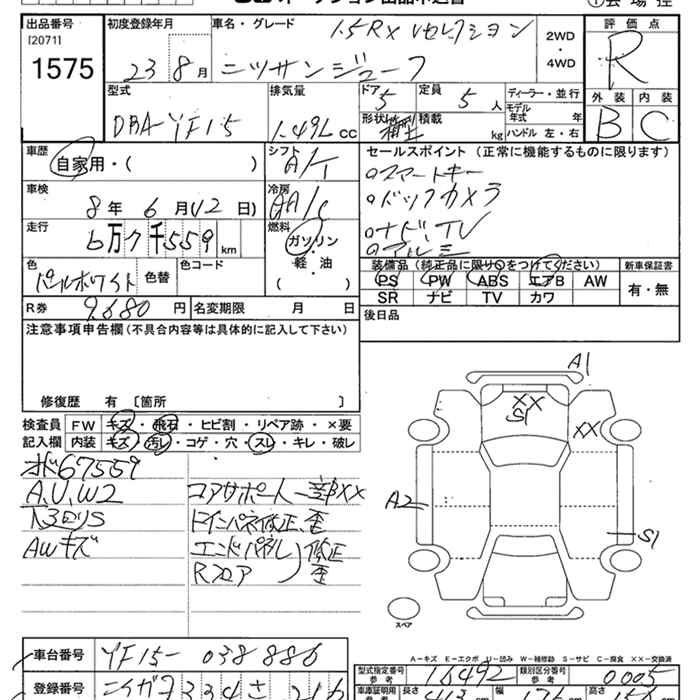 出品番号
[20711]
1575
初度登録年月
23 8 月
車名・グレード
1.5RX Vセレクション
ニッサンジューク
2WD
・
4WD
評価点
R
外装 内装
B C
型式
DBA-YF15
排気量
1.49L cc
ドア
5
定員
5 人
形状
積載
kg
ディーラー・並行
モデル
年式 年
ハンドル 左・右
車歴
自家用・( )
シフト
A/T
セールスポイント (正常に機能するものに限ります)
○スマートキー
○バックカメラ
○ナビ、TV
○アルミ
車検
8年 6月(12日)
冷房
AA/C
走行
6万7千559 km
燃料
ガソリン
・
軽・油
( )
色
パールホワイト
色替
色コード
装備品 (純正品に限り○をつけてください)
PS PW ABS エアB AW
SR ナビ TV カワ
新車保証書
有・無
R券 9,680 円
名変期限 月 日
後日品
注意事項申告欄 (不具合内容等は具体的に記入して下さい)
修復歴 有 〔箇所 〕
検査員
記入欄
FW キズ・飛石・ヒビ割・リペア跡・×要
内装 キズ・汚レ・コゲ・穴・スレ・キレ・破レ
オド67559
A,U,W2
下回りS
AWキズ
コアサポート一部XX
Rインパネ修正、歪
エンドパネル
Rフロア
修正
歪
A1
XX
S1
XX
A2
S1
スペア
A-キズ E-エクボ U-凹み W-補修跡 S-サビ C-腐食 XX-交換済
車台番号 YF15-038886
型式指定番号
参考
16492
類別区分番号
参考
0005
登録番号
車庫証明用
参考
長さ
幅
高さ